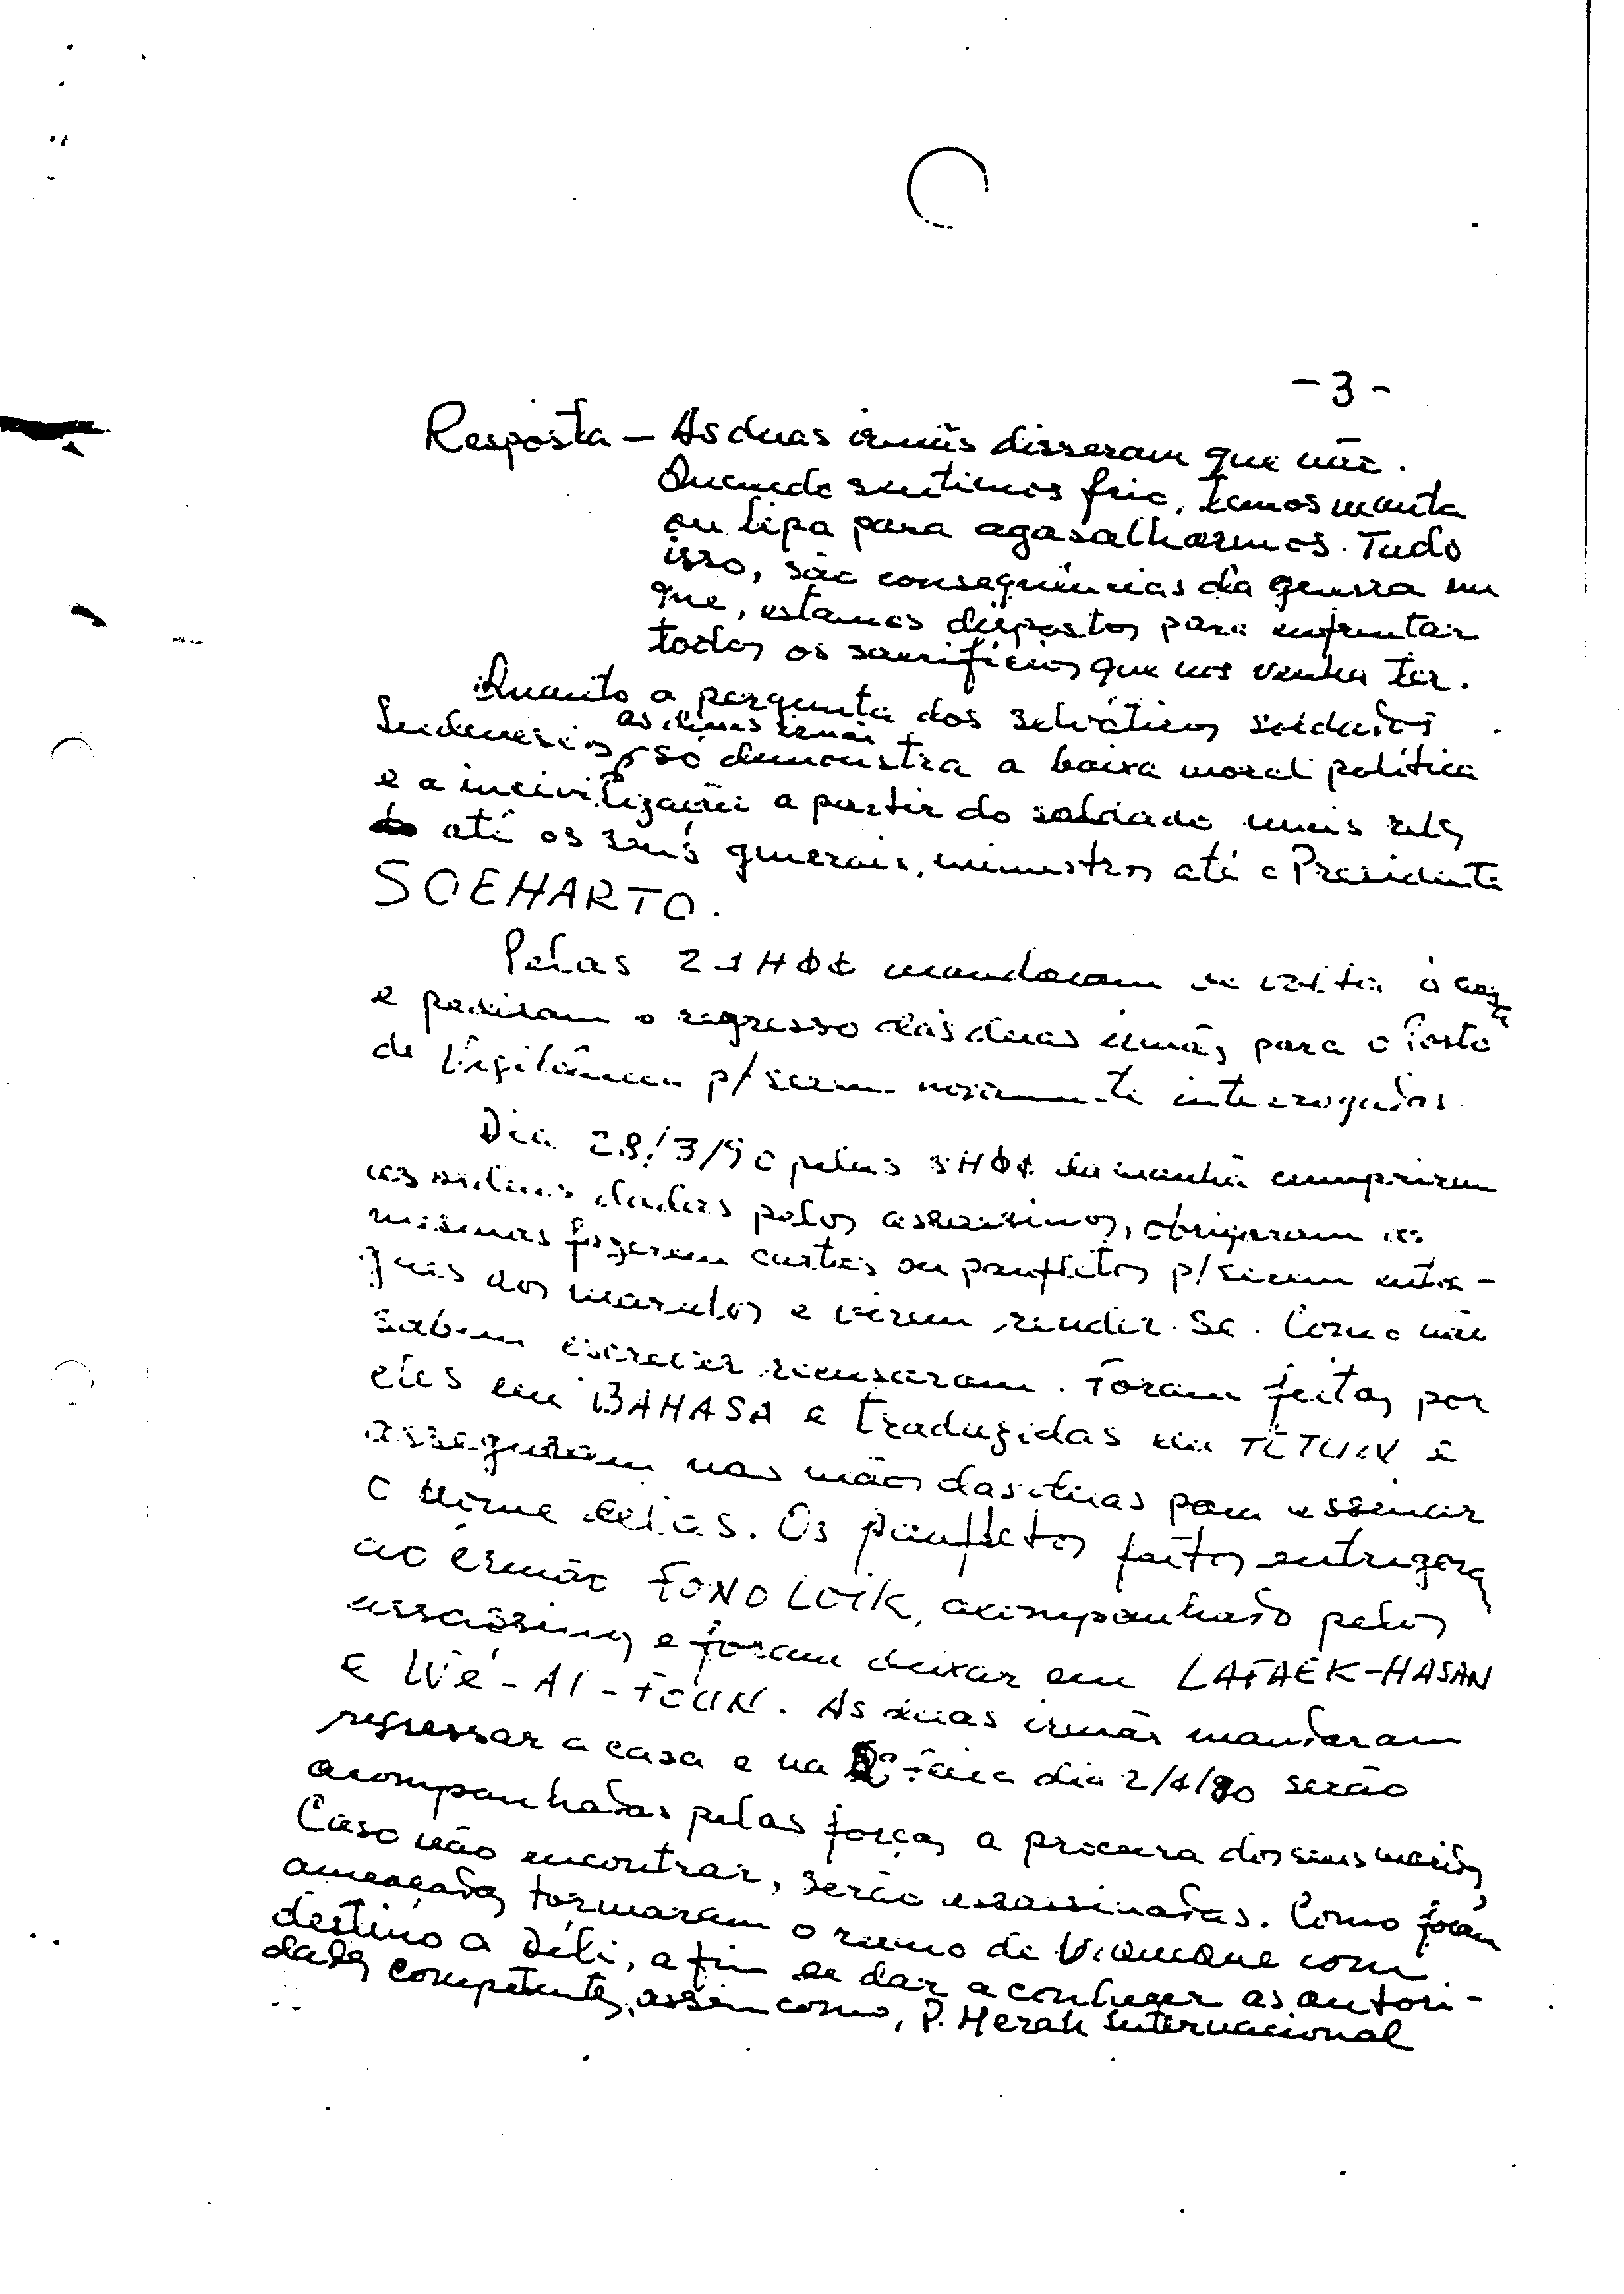 - 3 -
Resposta - As duas irmãs disseram que não.
Quando sentimos frio, temos manta
ou lipa para agasalharmos. Tudo
isso, são consequências da guerra em
que, estamos dispostos para enfrentar
todos os sacrifícios que nos venha ter.
Quanto a pergunta dos selváticos soldados
as duas irmãs
Indonésios, só demonstra a baixa moral política
e a incivilização a partir do soldado mais reles
até os seus generais, ministros até o Presidente
SOEHARTO.
Pelas 21HΦΦ mandaram
e pediram o regresso das duas irmãs para o Posto
de Vigilância p/serem novamente interrogadas.
Dia 28/3/90 pelas 8HΦΦ da manhã cumpriram
as ordens dadas pelos assassinos, obrigaram as
mesmas fazerem cartas ou panfletos p/serem entre-
gues aos maridos e virem render-se. Como não
sabem escrever recusaram. Foram feitas por
eles em BAHASA e traduzidas em TÉTUN e
asseguram nas mãos das duas para assinar
o nome delas. Os panfletos feitos entregora
ao irmão FONO LOIK, acompanhado pelos
assassinos e foram deixar em LAFAEK-HASAN
e WÉ-AI-FOUN. As duas irmãs mandaram
regressar a casa e na feira dia 2/4/90 serão
acompanhadas pelas forças a procura dos seus maridos,
Caso não encontrar, serão assassinadas. Como foram
ameaçadas tormaram o rumo de Viqueque com
destino a Díli, a fim de dar a conhecer as autori-
dades competentes, assim como, P. Merah Internacional